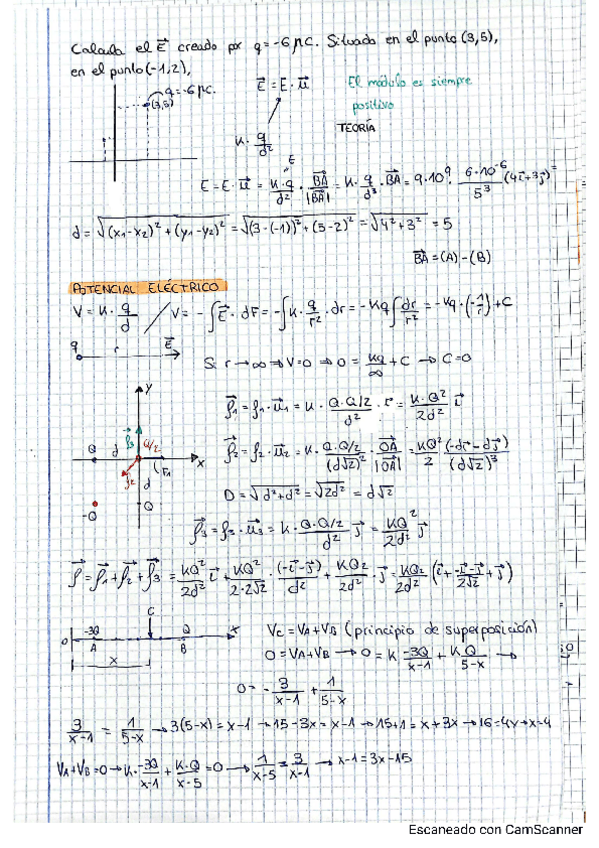 Calcula el E⃗ creado por q=-6 μC. Situado en el punto (3,5),
en el punto (-1,2),
q=-6 μC.
(3,5)
E⃗ = E · u⃗
El módulo es siempre
positivo
TEORÍA
K · q/d²
E
E = E · u⃗ = K·q/d² · BA⃗/|BA⃗| = K · q/d³ · BA⃗ = 9·10⁹ · 6·10⁻⁶/5³ (4i⃗+3j⃗) =
d = √((x₁-x₂)² + (y₁-y₂)²) = √((3-(-1))² + (5-2)²) = √(4²+3²) = 5
BA⃗ = (A) - (B)
POTENCIAL ELÉCTRICO
V = K · q/d / V = - ∫E⃗ · dr⃗ = -∫K · q/r² · dr = -Kq ∫dr/r² = -Kq · (-1/r) + C
q r E⃗
Si r → ∞ → V=0 → 0 = Kq/∞ + C → C=0
Y
f⃗₁ = f₁ · u⃗₁ = K · Q·Q/2/d² · i⃗ = K·Q²/2d² i⃗
f⃗₃ Q/2
Q d X
f⃗₂ F₁
f⃗₂ = f₂ · u⃗₂ = K · Q·Q/2/(d√2)² · OA⃗/|OA⃗| = KQ²/2 (-di⃗-dj⃗)/(d√2)³
d
D = √(d²+d²) = √(2d²) = d√2
-Q Q
f⃗₃ = f₃ · u⃗₃ = K · Q·Q/2/d² j⃗ = KQ²/2d² j⃗
f⃗ = f⃗₁ + f⃗₂ + f⃗₃ = KQ²/2d² i⃗ + KQ²/2·2√2 · (-i⃗-j⃗)/d² + KQ₂/2d² · j⃗ = KQ₂/2d² (i⃗ + -i⃗-j⃗/2√2 + j⃗)
C
0 -3Q Q x
A B
x
Vc = VA+VB (principio de superposición)
0 = VA+VB → 0 = K -3Q/x-1 + KQ/5-x →
0 = - 3/x-1 + 1/5-x
3/x-1 = 1/5-x → 3(5-x) = x-1 → 15-3x = x-1 → 15+1 = x+3x → 16=4x → x=4
VA+VB=0 → K · -3Q/x-1 + K·Q/x-5 = 0 → 1/x-5 = 3/x-1 → x-1 = 3x-15
Escaneado con CamScanner